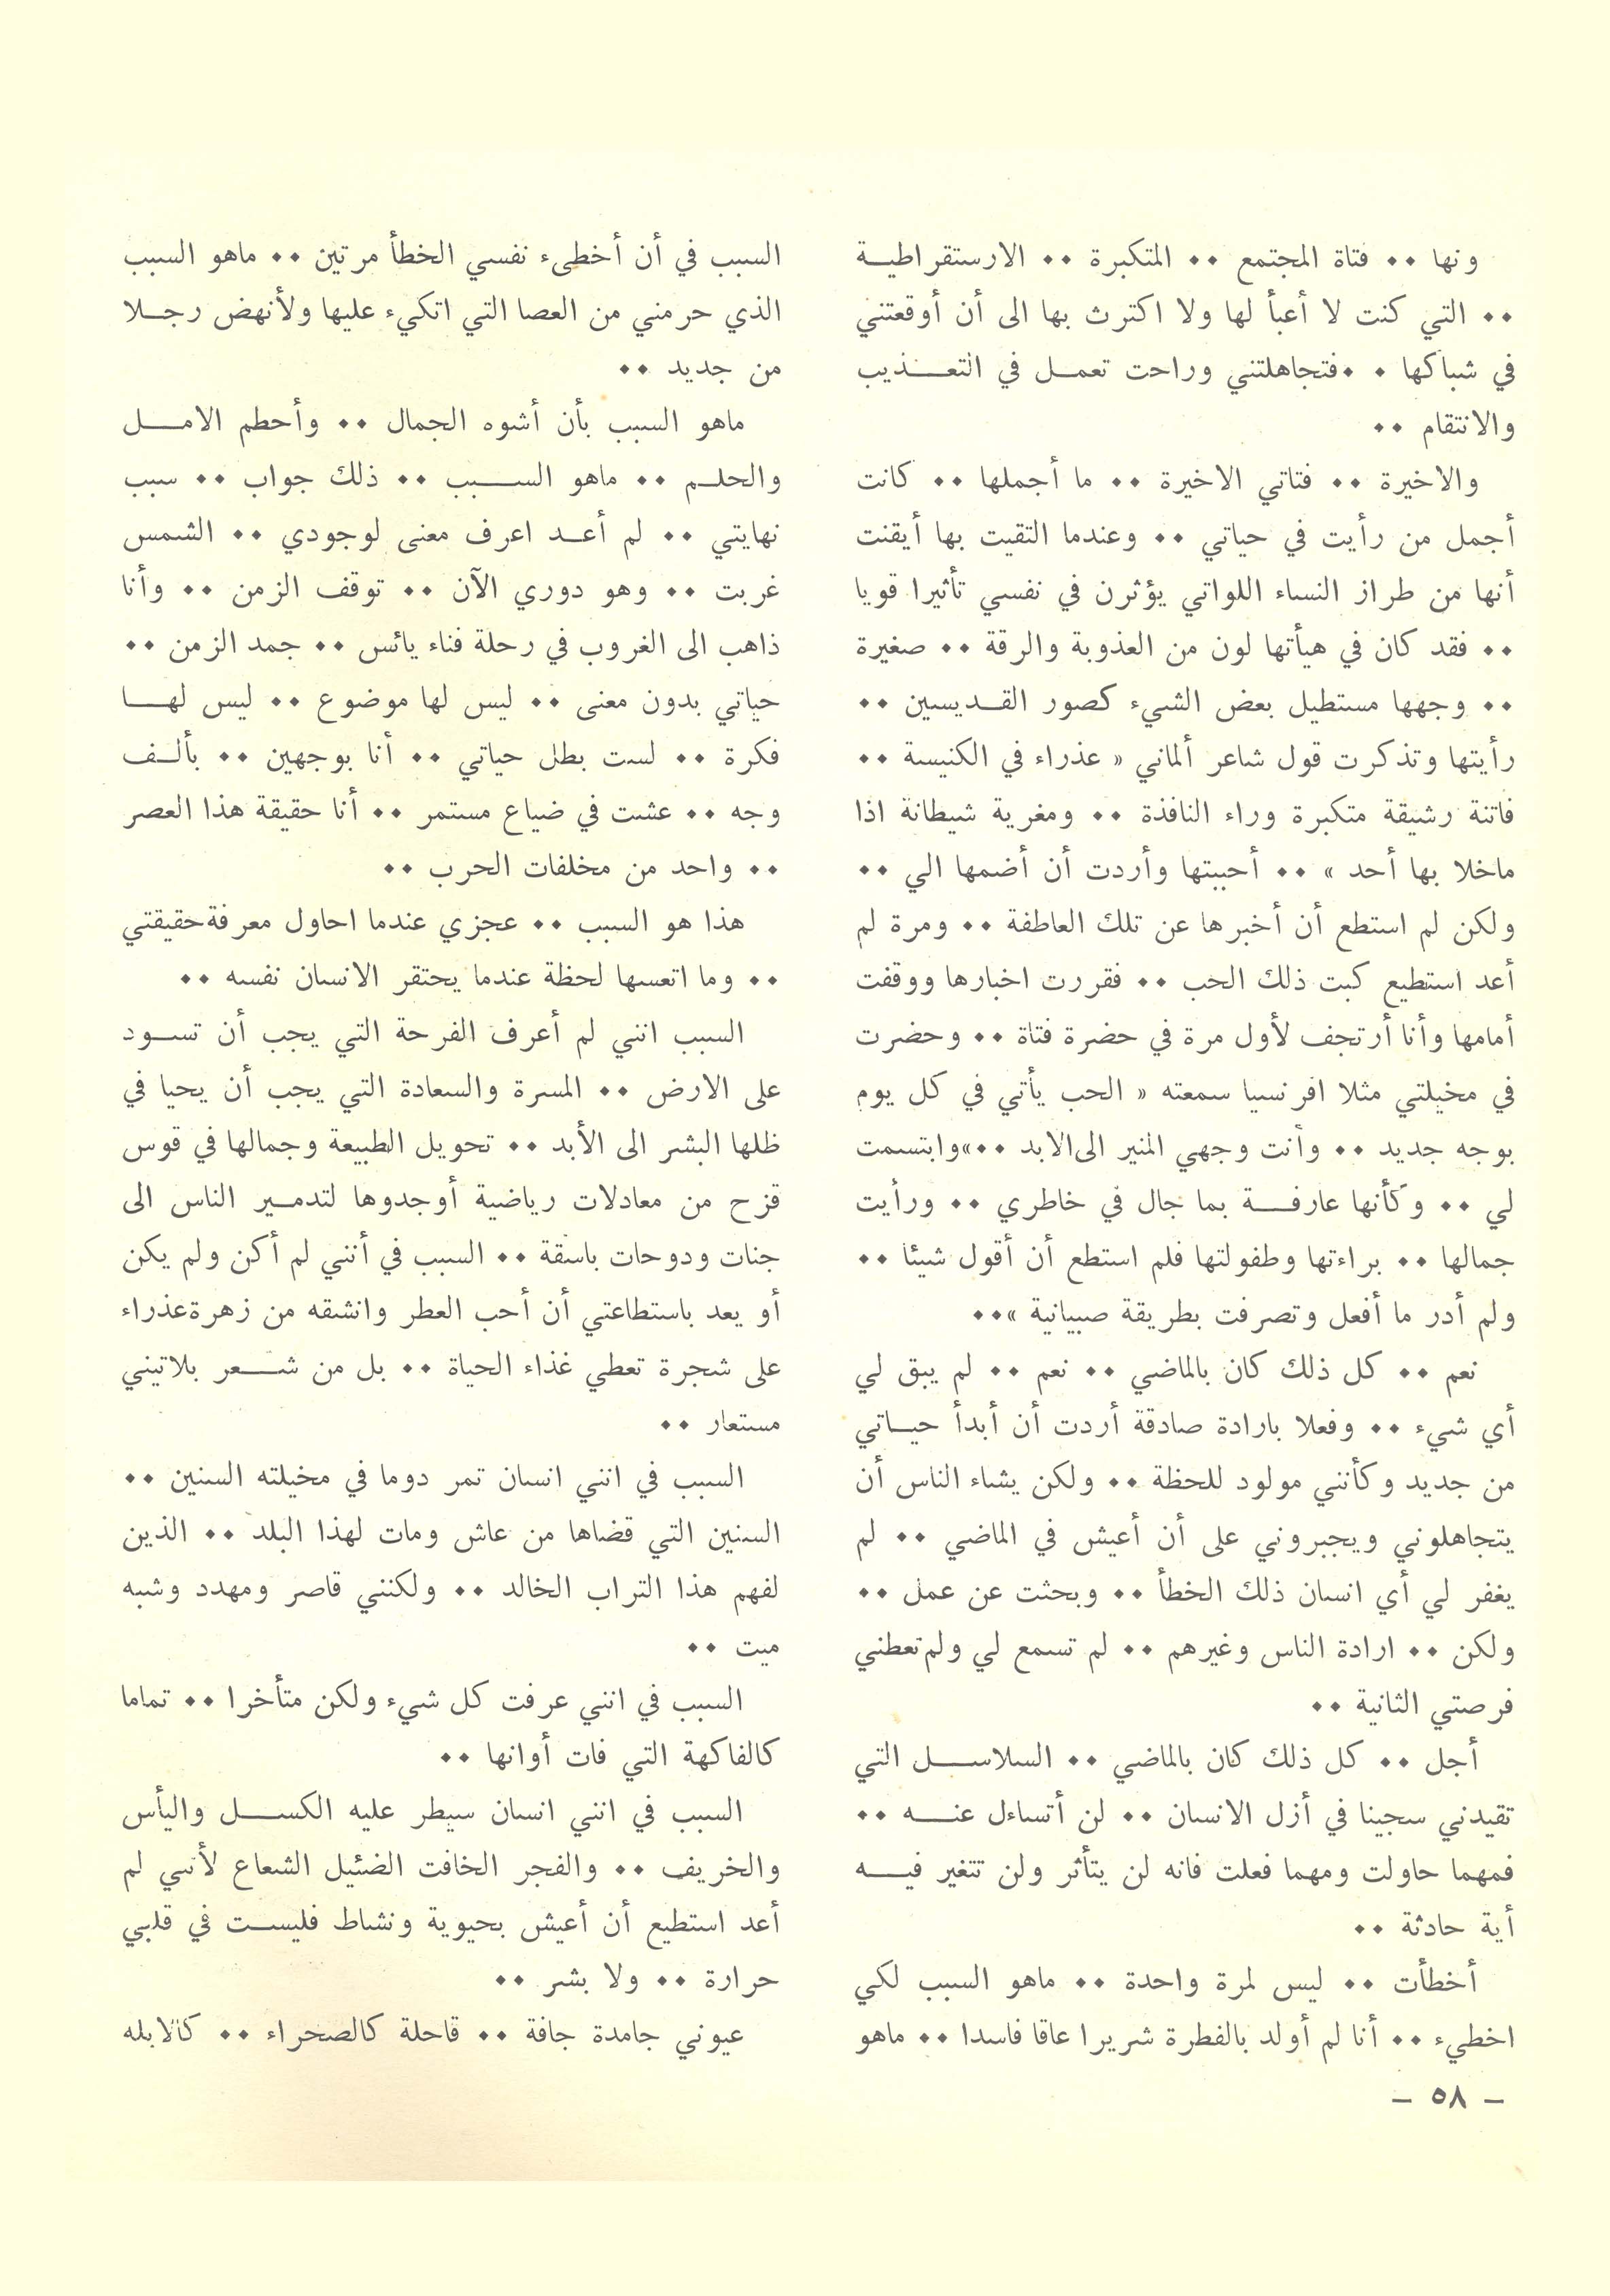 ونها •• فتاة المجتمع •• المتكبرة •• الارستقراطية
•• التي كنت لا أعبأ لها ولا اكترث بها الى أن أوقعتني
في شباكها • •فتجاهلتني وراحت تعمل في التعذيب
والانتقام ••
والاخيرة •• فتاتي الاخيرة •• ما أجملها •• كانت
أجمل من رأيت في حياتي •• وعندما التقيت بها أيقنت
أنها من طراز النساء اللواتي يؤثرن في نفسي تأثيرا قويا
•• فقد كان في هيأتها لون من العذوبة والرقة •• صغيرة
•• وجهها مستطيل بعض الشيء كصور القديسين ••
رأيتها وتذكرت قول شاعر ألماني « عذراء في الكنيسة ••
فاتنة رشيقة متكبرة وراء النافذة •• ومغرية شيطانة اذا
ماخلا بها أحد » •• أحببتها وأردت أن أضمها الي ••
ولكن لم استطع أن أخبرها عن تلك العاطفة •• ومرة لم
أعد استطيع كبت ذلك الحب •• فقررت اخبارها ووقفت
أمامها وأنا أرتجف لأول مرة في حضرة فتاة •• وحضرت
في مخيلتي مثلا افرنسيا سمعته « الحب يأتي في كل يوم
بوجه جديد •• وأنت وجهي المنير الى الابد ••» وابتسمت
لي •• وكأنها عارفة بما جال في خاطري •• ورأيت
جمالها •• براءتها وطفولتها فلم استطع أن أقول شيئا ••
ولم أدر ما أفعل وتصرفت بطريقة صبيانية »••
نعم •• كل ذلك كان بالماضي •• نعم •• لم يبق لي
أي شيء •• وفعلا بارادة صادقة أردت أن أبدأ حياتي
من جديد وكأنني مولود للحظة •• ولكن يشاء الناس أن
يتجاهلوني ويجبروني على أن أعيش في الماضي •• لم
يغفر لي أي انسان ذلك الخطأ •• وبحثت عن عمل ••
ولكن •• ارادة الناس وغيرهم •• لم تسمع لي ولم تعطني
فرصتي الثانية ••
أجل •• كل ذلك كان بالماضي •• السلاسل التي
تقيدني سجينا في أزل الانسان •• لن أتساءل عنه ••
فمهما حاولت ومهما فعلت فانه لن يتأثر ولن تتغير فيه
أية حادثة ••
أخطأت •• ليس لمرة واحدة •• ماهو السبب لكي
اخطيء •• أنا لم أولد بالفطرة شريرا عاقا فاسدا •• ماهو
السبب في أن أخطىء نفسي الخطأ مرتين •• ماهو السبب
الذي حرمني من العصا التي اتكيء عليها ولأنهض رجلا
من جديد ••
ماهو السبب بأن أشوه الجمال •• وأحطم الامل
والحلم •• ماهو السبب •• ذلك جواب •• سبب
نهايتي •• لم أعد اعرف معنى لوجودي •• الشمس
غربت •• وهو دوري الآن •• توقف الزمن •• وأنا
ذاهب الى الغروب في رحلة فناء يائس •• جمد الزمن ••
حياتي بدون معنى •• ليس لها موضوع •• ليس لها
فكرة •• لست بطل حياتي •• أنا بوجهين •• بألف
وجه •• عشت في ضياع مستمر •• أنا حقيقة هذا العصر
•• واحد من مخلفات الحرب ••
هذا هو السبب •• عجزي عندما احاول معرفة حقيقتي
•• وما اتعسها لحظة عندما يحتقر الانسان نفسه ••
السبب انني لم أعرف الفرحة التي يجب أن تسود
على الارض •• المسرة والسعادة التي يجب أن يحيا في
ظلها البشر الى الأبد •• تحويل الطبيعة وجمالها في قوس
قزح من معادلات رياضية أوجدوها لتدمير الناس الى
جنات ودوحات باسقة •• السبب في أنني لم أكن ولم يكن
أو يعد باستطاعتي أن أحب العطر وانشقه من زهرة عذراء
على شجرة تعطي غذاء الحياة •• بل من شعر بلاتيني
مستعار ••
السبب في انني انسان تمر دوما في مخيلته السنين ••
السنين التي قضاها من عاش ومات لهذا البلد •• الذين
لفهم هذا التراب الخالد •• ولكنني قاصر ومهدد وشبه
ميت ••
السبب في انني عرفت كل شيء ولكن متأخرا •• تماما
كالفاكهة التي فات أوانها ••
السبب في انني انسان سيطر عليه الكسل واليأس
والخريف •• والفجر الخافت الضئيل الشعاع لأنني لم
أعد استطيع أن أعيش بحيوية ونشاط فليست في قلبي
حرارة •• ولا بشر ••
عيوني جامدة جافة •• قاحلة كالصحراء •• كالابله
– ٥٨ –